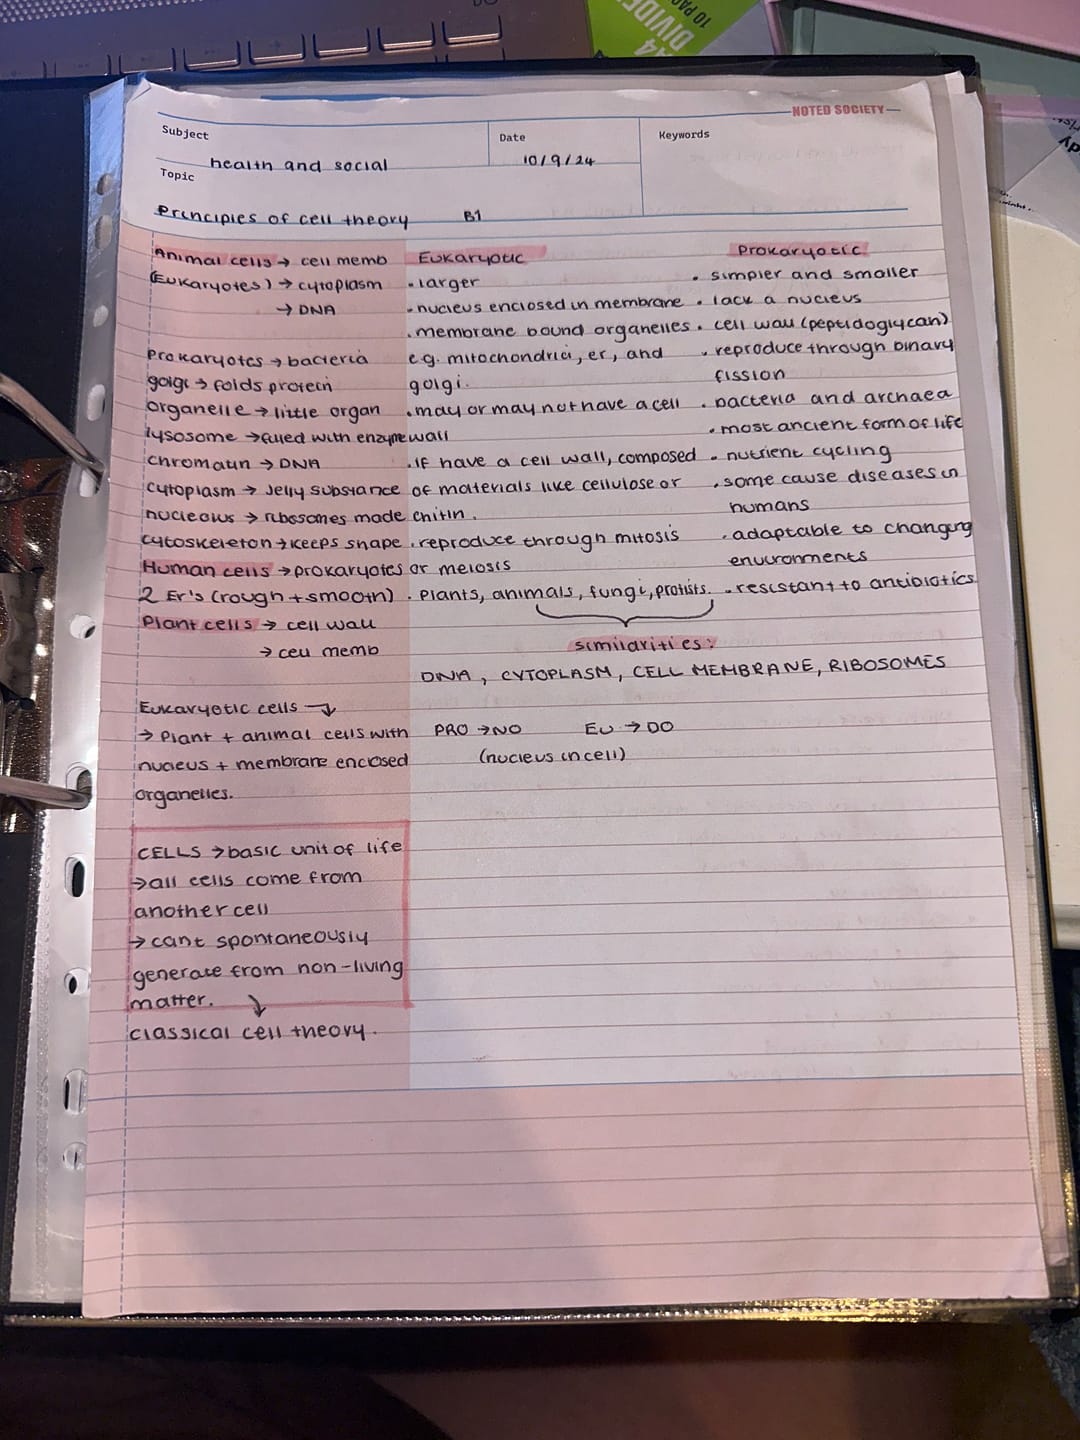 A4
DIVIDE
10 PA
NOTED SOCIETY
Subject
health and social
Date
10/9/24
Keywords
Topic
Principles of cell theory B1
Animal cells → cell memb
(Eukaryotes) → cytoplasm
→ DNA
Prokaryotes → bacteria
golgi → folds protein
organelle → little organ
lysosome → filled with enzyme
chromatin → DNA
cytoplasm → Jelly substance
nucleolus → ribosomes made
cytoskeleton → keeps shape
Human cells → prokaryotes
2 Er's (rough + smooth)
Plant cells → cell wall
→ cell memb
Eukaryotic cells →
→ Plant + animal cells with
nucleus + membrane enclosed
organelles.
CELLS → basic unit of life
→ all cells come from
another cell
→ cant spontaneously
generate from non-living
matter. ↘
classical cell theory.
Eukaryotic
• larger
• nucleus enclosed in membrane
• membrane bound organelles
e.g. mitochondria, er, and
golgi.
• may or may not have a cell
wall
• if have a cell wall, composed
of materials like cellulose or
chitin.
• reproduce through mitosis
or meiosis
• Plants, animals, fungi, protists.
Prokaryotic
• simpler and smaller
• lack a nucleus
• cell wall (peptidoglycan)
• reproduce through binary
fission
• bacteria and archaea
• most ancient form of life
• nutrient cycling
• some cause diseases in
humans
• adaptable to changing
environments
• resistant to antibiotics
similarities:
DNA, CYTOPLASM, CELL MEMBRANE, RIBOSOMES
PRO → NO EU → DO
(nucleus in cell)